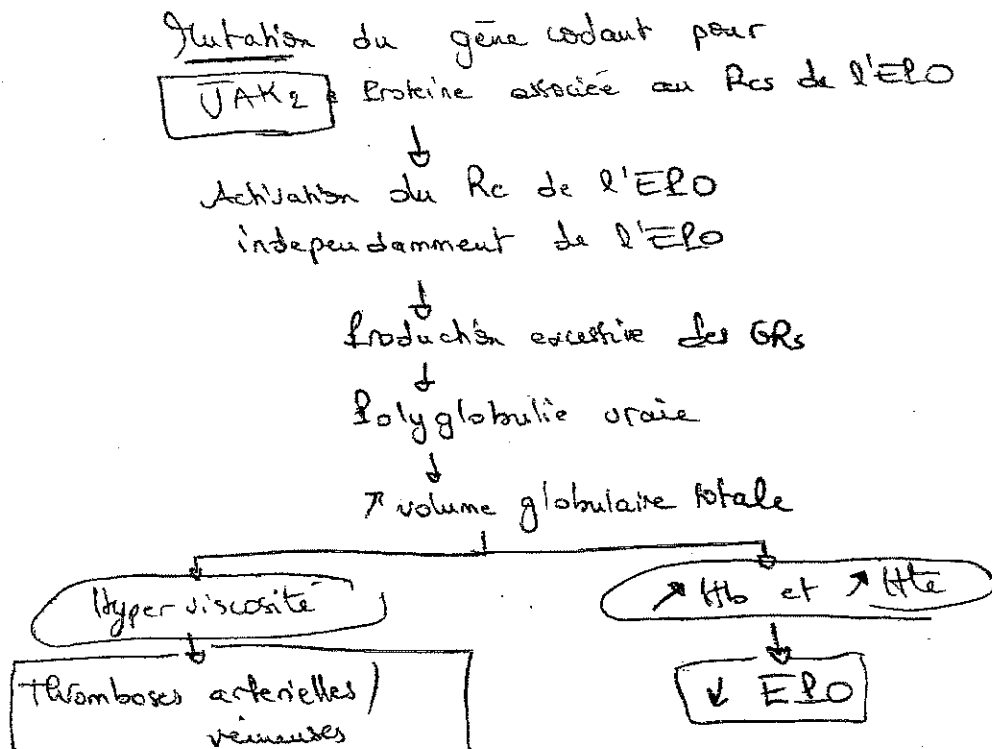 Mutation du gène codant pour
JAK2 : Protéine associée au Rcs de l'EPO
↓
Activation du Rc de l'EPO
independamment de l'EPO
↓
Production excessive des GRs
↓
Polyglobulie vraie
↓
↗ volume globulaire totale
Hyperviscosité
↗ Hb et ↗ Hte
↓
↓
Thromboses arterielles /
veineuses
↓ EPO